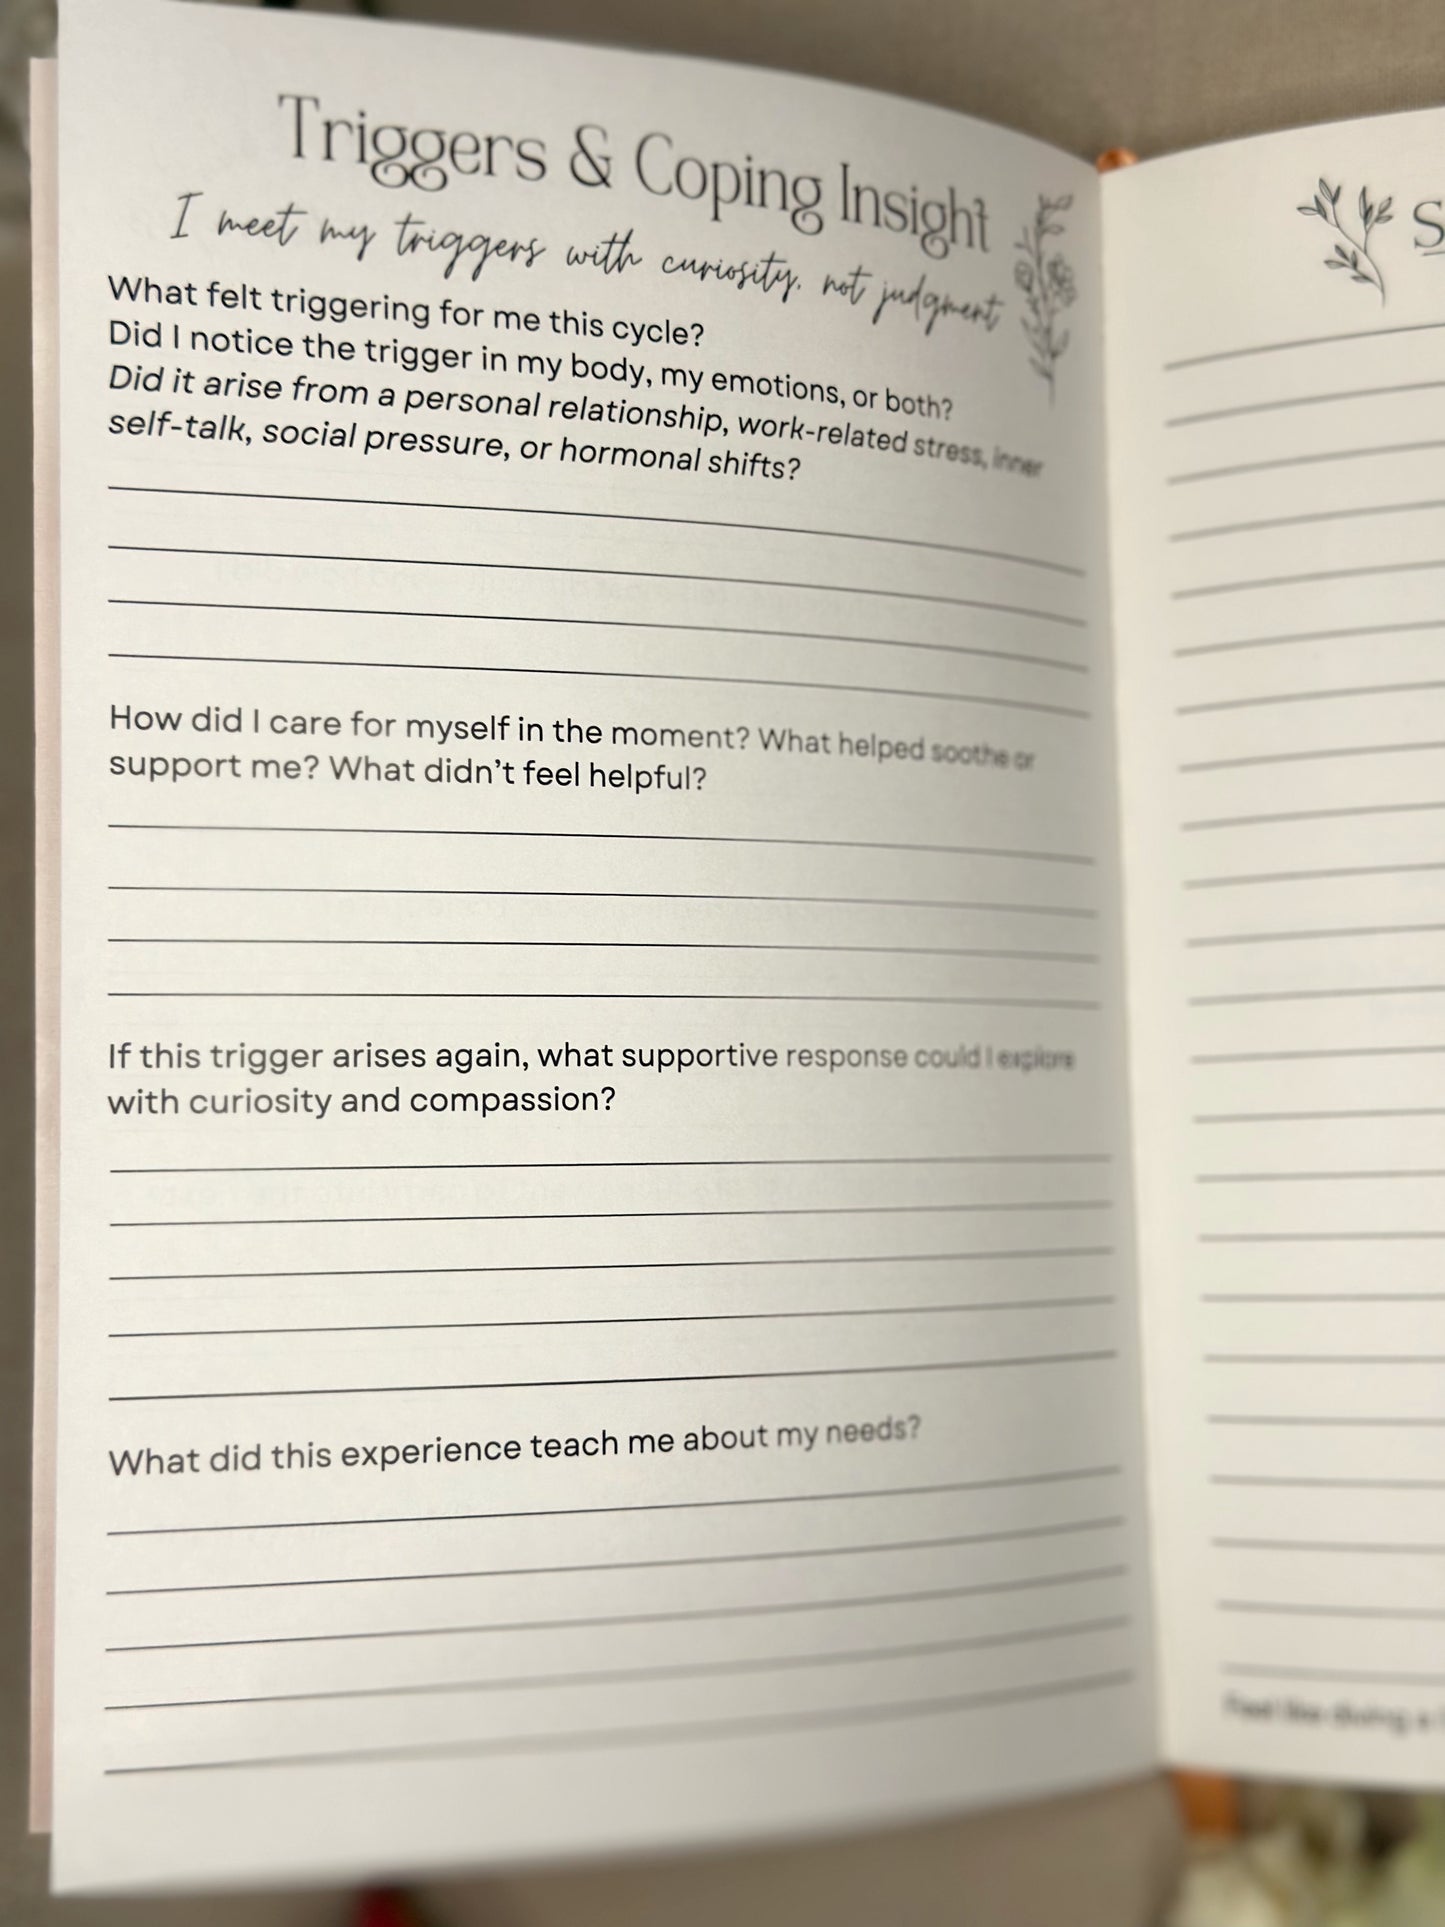 Triggers & Coping Insight
I meet my triggers with curiosity, not judgment
What felt triggering for me this cycle?
Did I notice the trigger in my body, my emotions, or both?
Did it arise from a personal relationship, work-related stress, inner
self-talk, social pressure, or hormonal shifts?
How did I care for myself in the moment? What helped soothe or
support me? What didn't feel helpful?
If this trigger arises again, what supportive response could I explore
with curiosity and compassion?
What did this experience teach me about my needs?
S
Feel like diving a